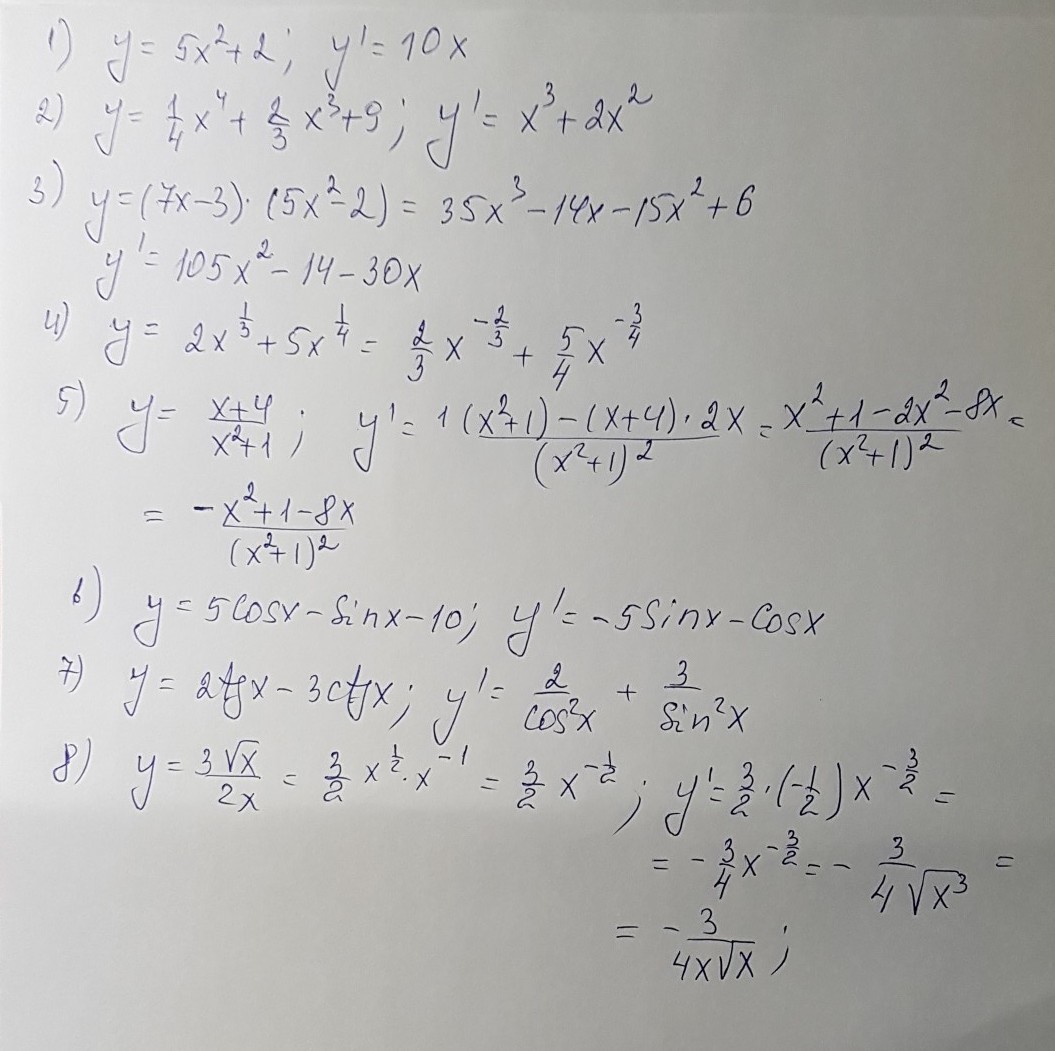 1) y = 5x² + 2; y' = 10x
2) y = 1/4 x⁴ + 2/3 x³ + 9; y' = x³ + 2x²
3) y = (7x-3)·(5x²-2) = 35x³ - 14x - 15x² + 6
y' = 105x² - 14 - 30x
4) y = 2x^(1/3) + 5x^(1/4) = 2/3 x^(-2/3) + 5/4 x^(-3/4)
5) y = (x+4)/(x²+1); y' = (1(x²+1) - (x+4)·2x)/(x²+1)² = (x²+1-2x²-8x)/(x²+1)² =
= (-x²+1-8x)/(x²+1)²
6) y = 5cosx - sinx - 10; y' = -5sinx - cosx
7) y = 2tgx - 3ctgx; y' = 2/cos²x + 3/sin²x
8) y = 3√x/2x = 3/2 x^(1/2) · x^(-1) = 3/2 x^(-1/2); y' = 3/2·(-1/2)x^(-3/2) =
= -3/4 x^(-3/2) = - 3/(4√x³) =
= - 3/(4x√x);